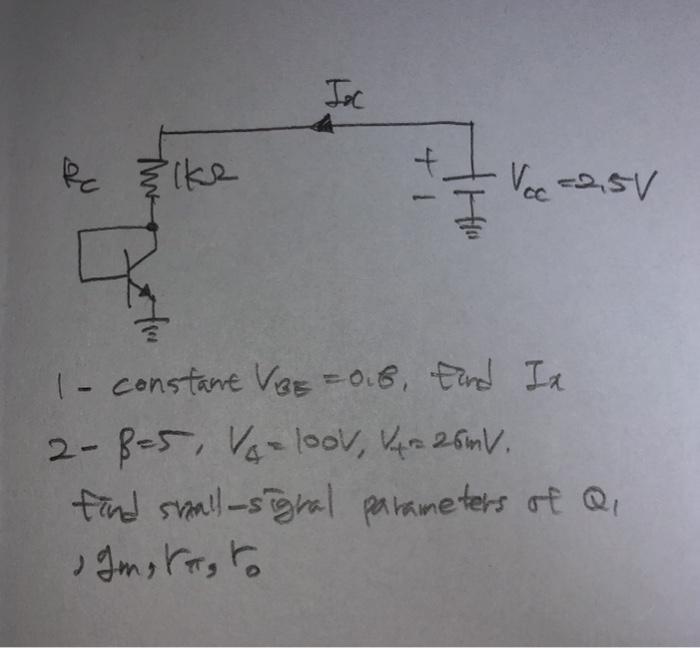 Ix
Rc 1kΩ + Vcc = 2,5V
-
1 - constant VBE = 0.8, find Ix
2 - β=5, VA = 100V, Vt = 26mV.
find small-signal parameters of Q1
, gm, rπ, ro